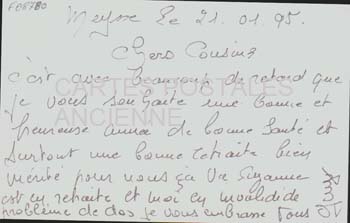 F08780
Meyssе le 21.01.95.
Chers Cousins
c'est avec beaucoup de retard que
je vous souhaite une bonne et
heureuse année de bonne santé et
surtout une bonne retraite bien
mérité pour nous ça va Suzanne
est en retraite et moi en invalidide
problème de dos je vous embrasse tous
CARTES POSTALES
ANCIENNE